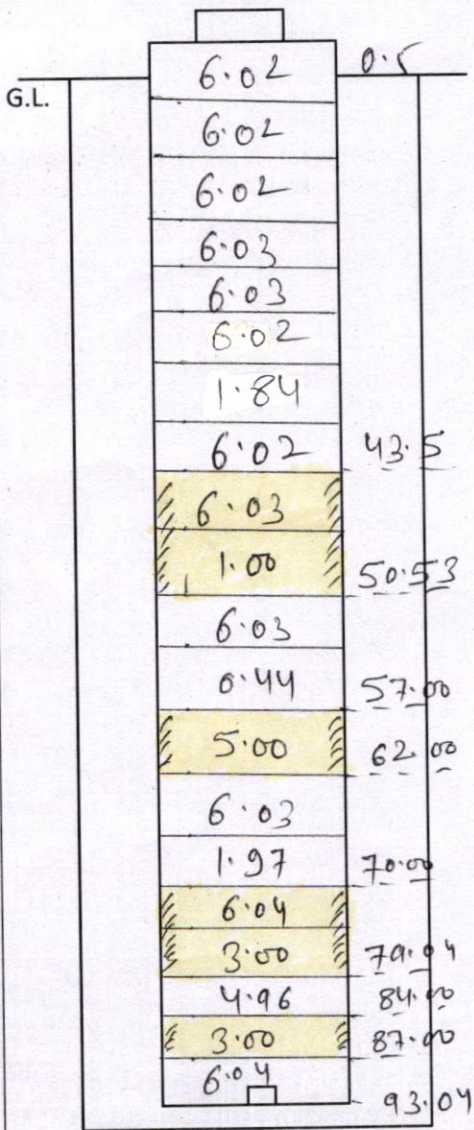 6.02 0.5
G.L.
6.02
6.02
6.03
6.03
6.02
1.84
6.02 43.5
6.03
1.00 50.53
6.03
0.44 57.00
5.00 62.00
6.03
1.97 70.00
6.04
3.00 79.04
4.96 84.00
3.00 87.00
6.04
93.04